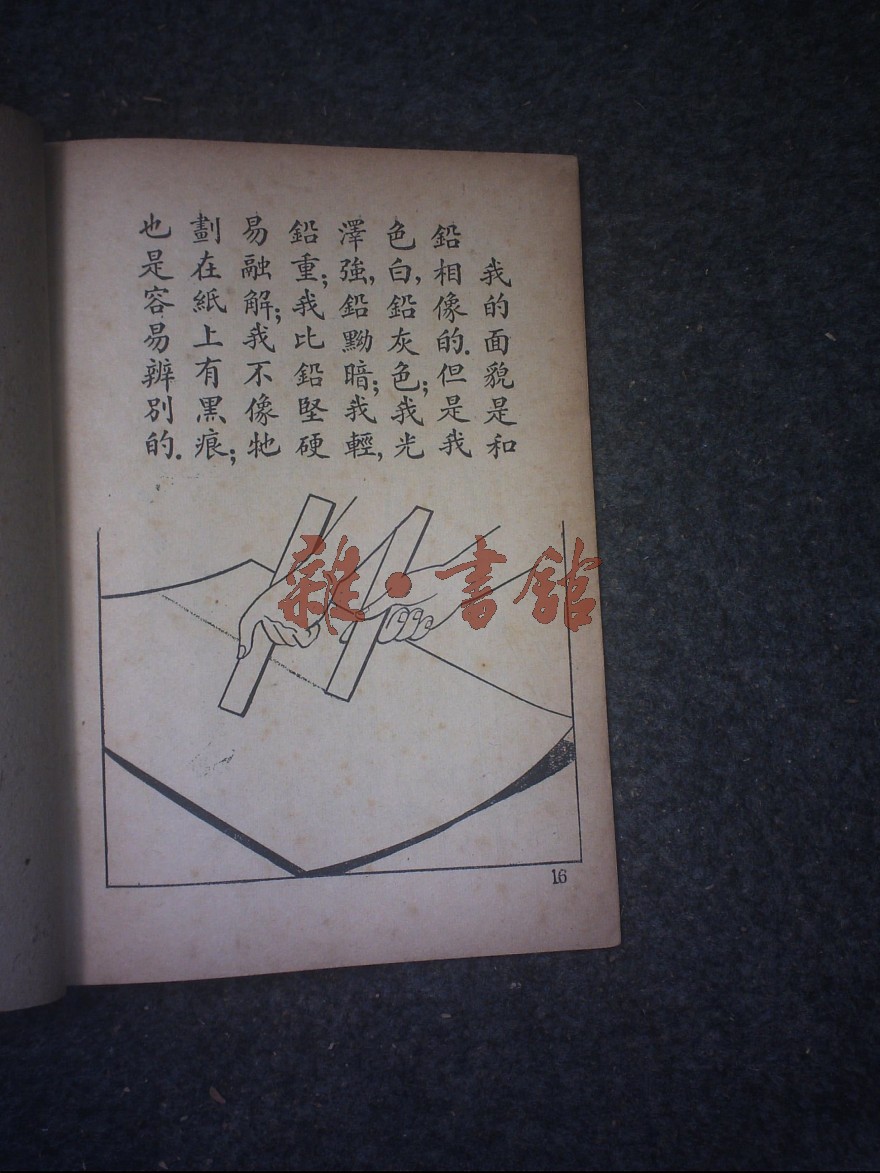 我的面貌是和
鉛相像的.但是我
色白,鉛灰色;我光
澤強,鉛黝暗;我輕,
鉛重;我比鉛堅硬
易融解;我不像牠
劃在紙上有黑痕;
也是容易辨別的.
雜·書館
16